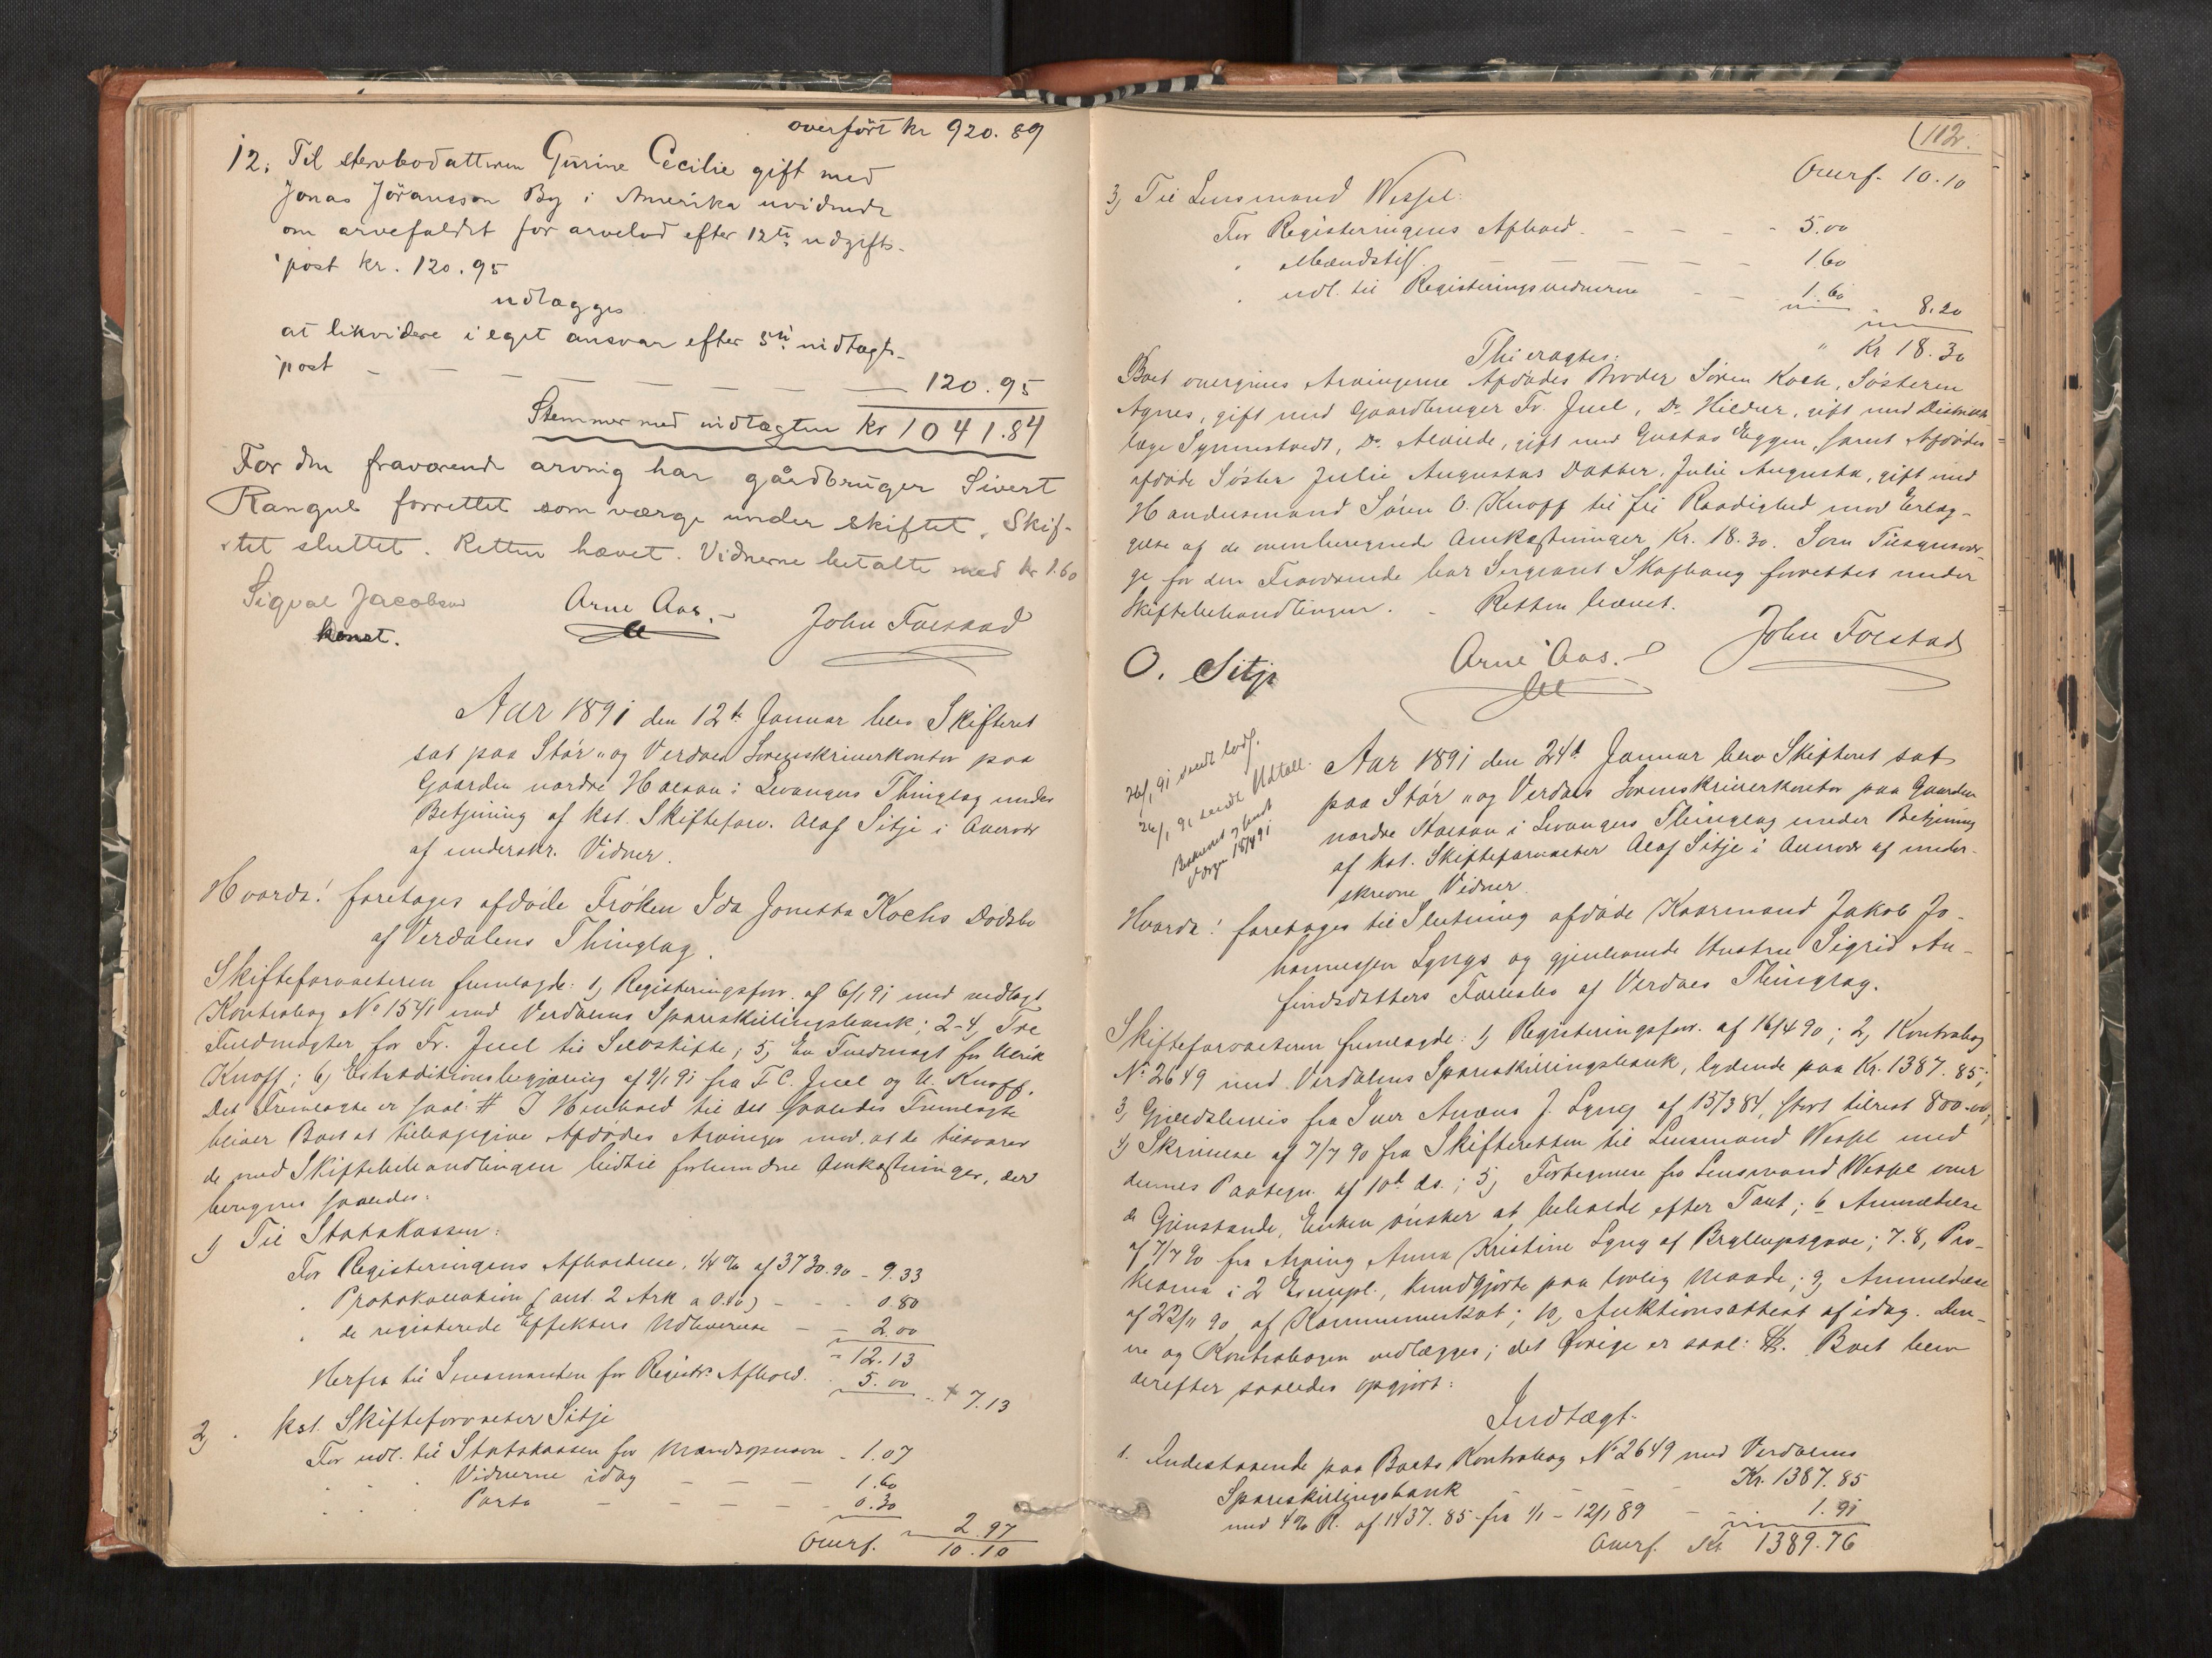 overført kr 920.89
12. Til sterbodatteren Gurine Cecilie gift med
Jonas Jöransson By i Amerika uvidende
om arvefaldet for arvelod efter 12te udgifts-
post kr. 120.95
udlægges
at likvidere i eget ansvar efter 5te indtægts-
post — — — — — — — 120.95
Stemmer med indtægten kr 1041.84
For den fraværende arving har gårdbruger Sivert
Rangul forrettet som værge under skiftet. Skif-
tet sluttet. Retten hævet. Vidnerne betalte med kr 1.60
Sigval Jacobsen Arne Aas. John Forstad
konst.
Aar 1891 den 12te Januar blev Skifteret
sat paa Stør- og Værdal Sorenskriverkontor paa
Gaarden nordre Halsan i Levangers Thinglag under
Betjening af kst. Skifteforv. Olaf Sitje i Overvær
af underskr. Vidner.
Hvorda! foretoges afdøde Frøken Ida Jonetta Kochs Dødsbo
af Verdalens Thinglag.
Skifteforvalteren fremlagde: 1, Registeringsforr. af 6/1 91 med vedlagt
Kontrabog No 1541 med Verdalens Spareskillingsbank; 2-4, Tre
Fuldmagter for Fr. Juel til Selvskifte; 5, En Fuldmagt for Ulrik
Knoff; 6, Extraditionsbegjæring af 9/1 91 fra F. C. Juel og U. Knoff.
Det Fremlagte er saal: # I Henhold til det saaledes Fremlagte
bliver Boet at tilbagegive Afdødes Arvinger mod at de tilsvarer
de med Skiftebehandlingen hidtil forbundne Omkostninger, der
beregnes saaledes:
1) Til Statskassen:
For Registeringens Afholdelse, 1/4 % af 3730.90 - 9.33
" Protokollation (ant. 2 Ark a 0.40) - - 0.80
" de registerede Effekters Udleverelse - - 2.00
- 12.13
Herfra til Lensmanden for Registr. Afhold. 5.00 - + 7.13
2) kst. Skifteforvalter Sitje
For udl. til Statskassen for - 1.07
" " Vidnerne idag — — — 1.60
" " Porto — — — — 0.30
2.97
Overf. 10.10
112.
Overf. 10.10
3, Til Lensmand Wessel:
For Registeringens Afhold — — — - 5.00
" — — — — — 1.60
" udl. til Registeringsvidnerne — — 1.60
- 8.20
" Kr 18.30
Thi eragtes:
Boet overgives Arvingerne Afdødes Broder Søren Koch, Søsteren
Agnes, gift med Gaardbruger Fr. Juel, Do Hildur, gift med Distrikts-
læge Synnestvedt, Do Alvilde, gift med Gustav Eggen, samt Afdødes
afdøde Søster Julie Augustas Datter, Julie Augusta, gift med
Handelsmand Søren O. Knoff til fri Raadighed mod Erlæg-
gelse af de ovenberegnede Omkostninger Kr. 18.30. Som Tilsynsvær-
ge for den Fraværende har Sergeant Skajhaug forrettet under
Skiftebehandlingen. - Retten hævet.
O. Sitje Arne Aas. John Forstad
26/1 91 sendt lods.
26/1 91 sendt Udtall.
Aar 1891 den 24de Januar blev Skifteret sat
paa Stør- og Verdals Sorenskriverkontor paa Gaarden
nordre Halsan i Levangers Thinglag under Betjening
af kst. Skifteforvalter Olaf Sitje i Overvær af under-
skrevne Vidner.
Hvorda! foretoges til Slutning afdøde Kaarmand Jakob Jo-
hannessen Lyngs og gjenlevende Hustru Sigrid An-
findsdatters Fællesbo af Verdals Thinglag.
Skifteforvalteren fremlagde: 1, Registeringsforr. af 16/4 90; 2, Kontrabog
No 2649 med Verdalens Spareskillingsbank, lydende paa Kr. 1387.85;
3, Gjældsbevis fra Iver Anæus J. Lyng af 13/3 84, stort tilrest 800.00;
4, Skrivelse af 7/7 90 fra Skifteretten til Lensmand Wessel med
dennes Paategn. af 10de ds.; 5, Fortegnelse fra Lensmand Wessel over
de Gjenstande, Enken ønsker at beholde efter Taxt; 6 Anmeldelse
af 7/7 90 fra Arving Anna Kristine Lyng af Bryllupsgave; 7-8, Pro-
klama i 2 Exempl., kundgjorte paa lovlig Maade; 9, Anmeldelse
af 22/11 90 af Kommuneskat; 10, Auktionsattest af idag. Den-
ne og Kontrabogen vedlægges; det øvrige er saal: #. Boet blev
derefter saaledes opgjort:
Indtægt.
1. Indestaaende paa Boets Kontrabog No 2649 med Verdalens
Spareskillingsbank - - - Kr. 1387.85
med 4% R. af 1437.85 fra 1/1 - 12/1 89 - 1.91
Overf. Kr 1389.76